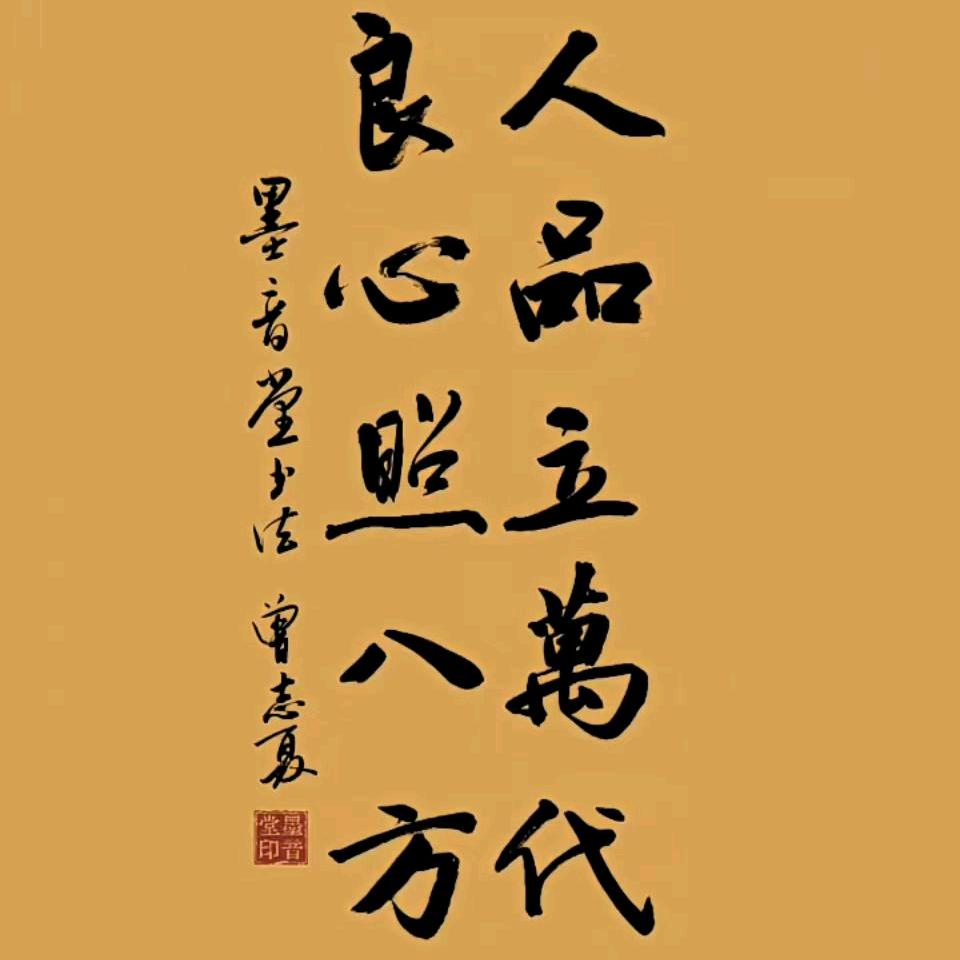 人品立萬代
良心照八方
墨音堂书法 曾志夏
墨音堂印